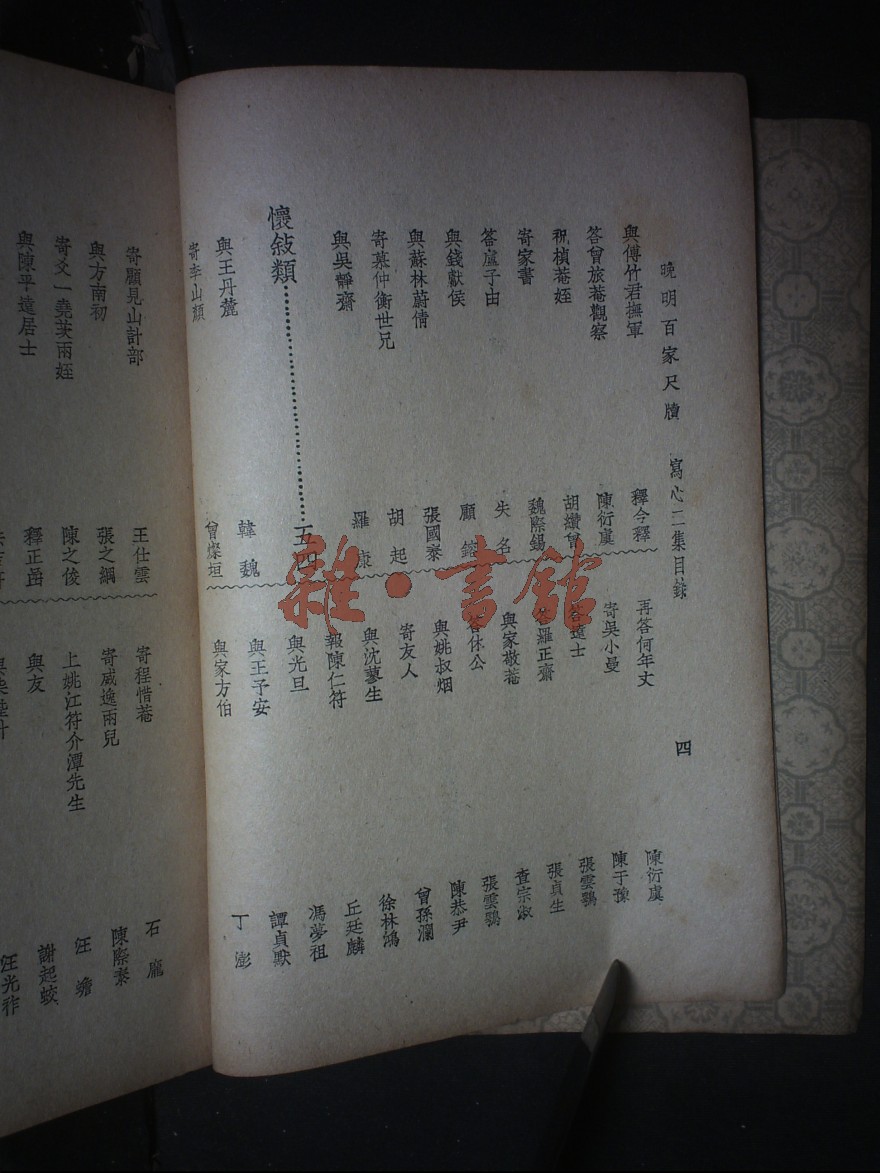 晚明百家尺牘 寫心二集目錄 四
與傅竹君撫軍 釋今釋
答曾旅菴觀察 陳衍虞
祝楨菴姪 胡纘曾
寄家書 魏際錫
答盧子由 失名
與錢獻侯 顧鎔
與蘇林蔚倩 張國泰
寄慕仲衡世兄 胡起
與吳靜齋 羅康
懷敍類 五四
與王丹麓 韓魏
寄李山顏 曾燦垣
再答何年丈 陳衍虞
寄吳小曼 陳于豫
答遠士 張雲鶚
答羅正齋 張貞生
與家敬菴 查宗淑
答休公 張雲鶚
與姚叔烟 陳恭尹
寄友人 曾孫瀾
與沈蓼生 徐林鴻
報陳仁符 丘廷麟
與光旦 馮夢祖
與王予安 譚貞默
與家方伯 丁澎
寄顧見山計部 王仕雲
與方南初 張之綱
寄爻一堯芙兩姪 陳之俊
與陳平遠居士 釋正嵒
寄程惜菴 石龐
寄咸逸兩兒 陳際泰
上姚江符介潭先生 汪蟾
與友 謝起蛟
汪光祚
雜·書館